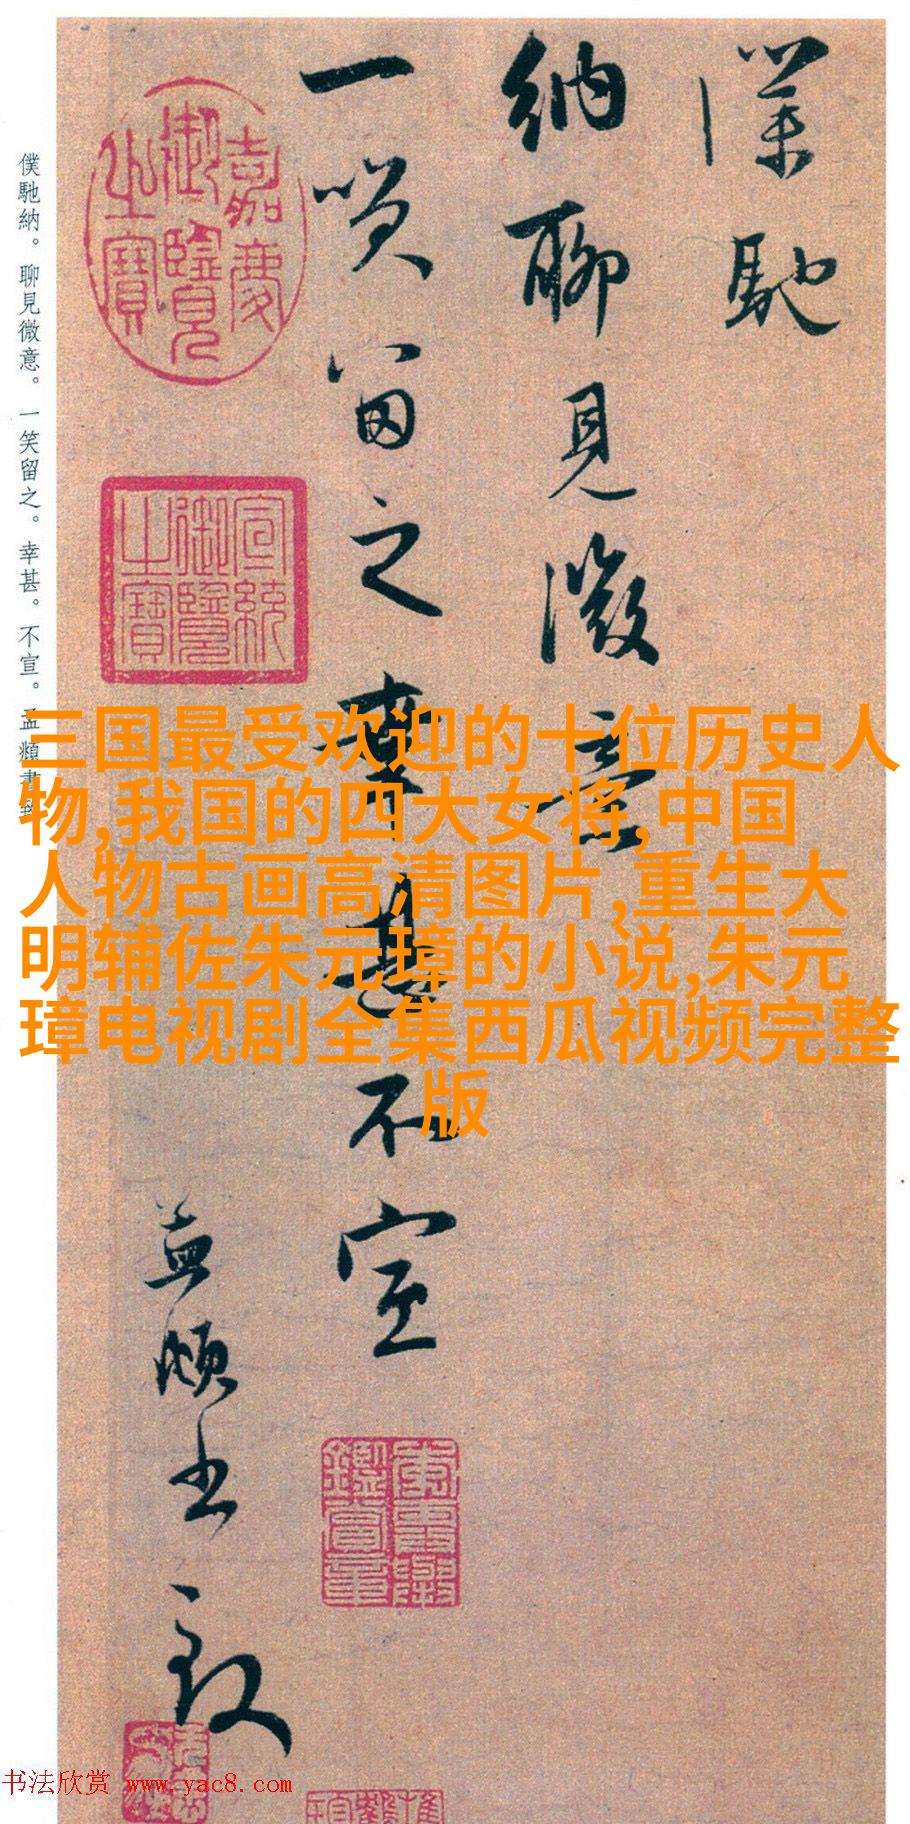 僕馳納。聊見微意。一笑留之。幸甚。不宣。孟頫書致
僕馳
納聊見微意
一笑留之幸甚不宣
孟頫書致
嘉慶御覽之寶
宣統御覽之寶
三国最受欢迎的十位历史人
物,我国的四大女将,中国
人物古画高清图片,重生大
明辅佐朱元璋的小说,朱元
璋电视剧全集西瓜视频完整
版
书法欣赏 www.yac8.com